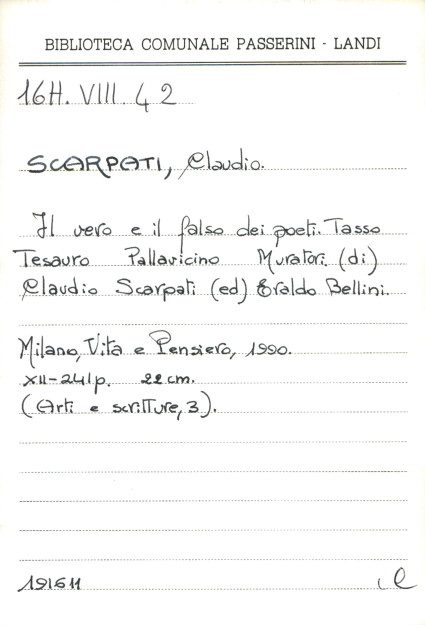 BIBLIOTECA COMUNALE PASSERINI - LANDI
16H. VIII. 42
SCARPATI, Claudio.
Il vero e il falso dei poeti. Tasso
Tesauro Pallavicino Muratori. (di)
Claudio Scarpati (ed) Eraldo Bellini.
Milano, Vita e Pensiero, 1990.
XII-241p. 22 cm.
(Arti e scritture, 3).
191611